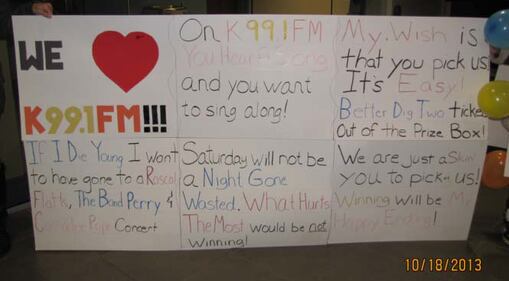 WE
K99.1FM!!!
On K99.1FM
You Hear A Song
and you want
to sing along!
My Wish is
that you pick us
It's Easy!
Better Dig Two ticke
Out of the Prize Box!
If I Die Young I want
to have gone to a Rascal
Flatts, The Band Perry &
Cassadee Pope Concert
Saturday will not be
a Night Gone
Wasted. What Hurts
The Most would be not
winning!
We are just a Skin'
you to pick us!
Winning will be My
Happy Ending!
10/18/2013